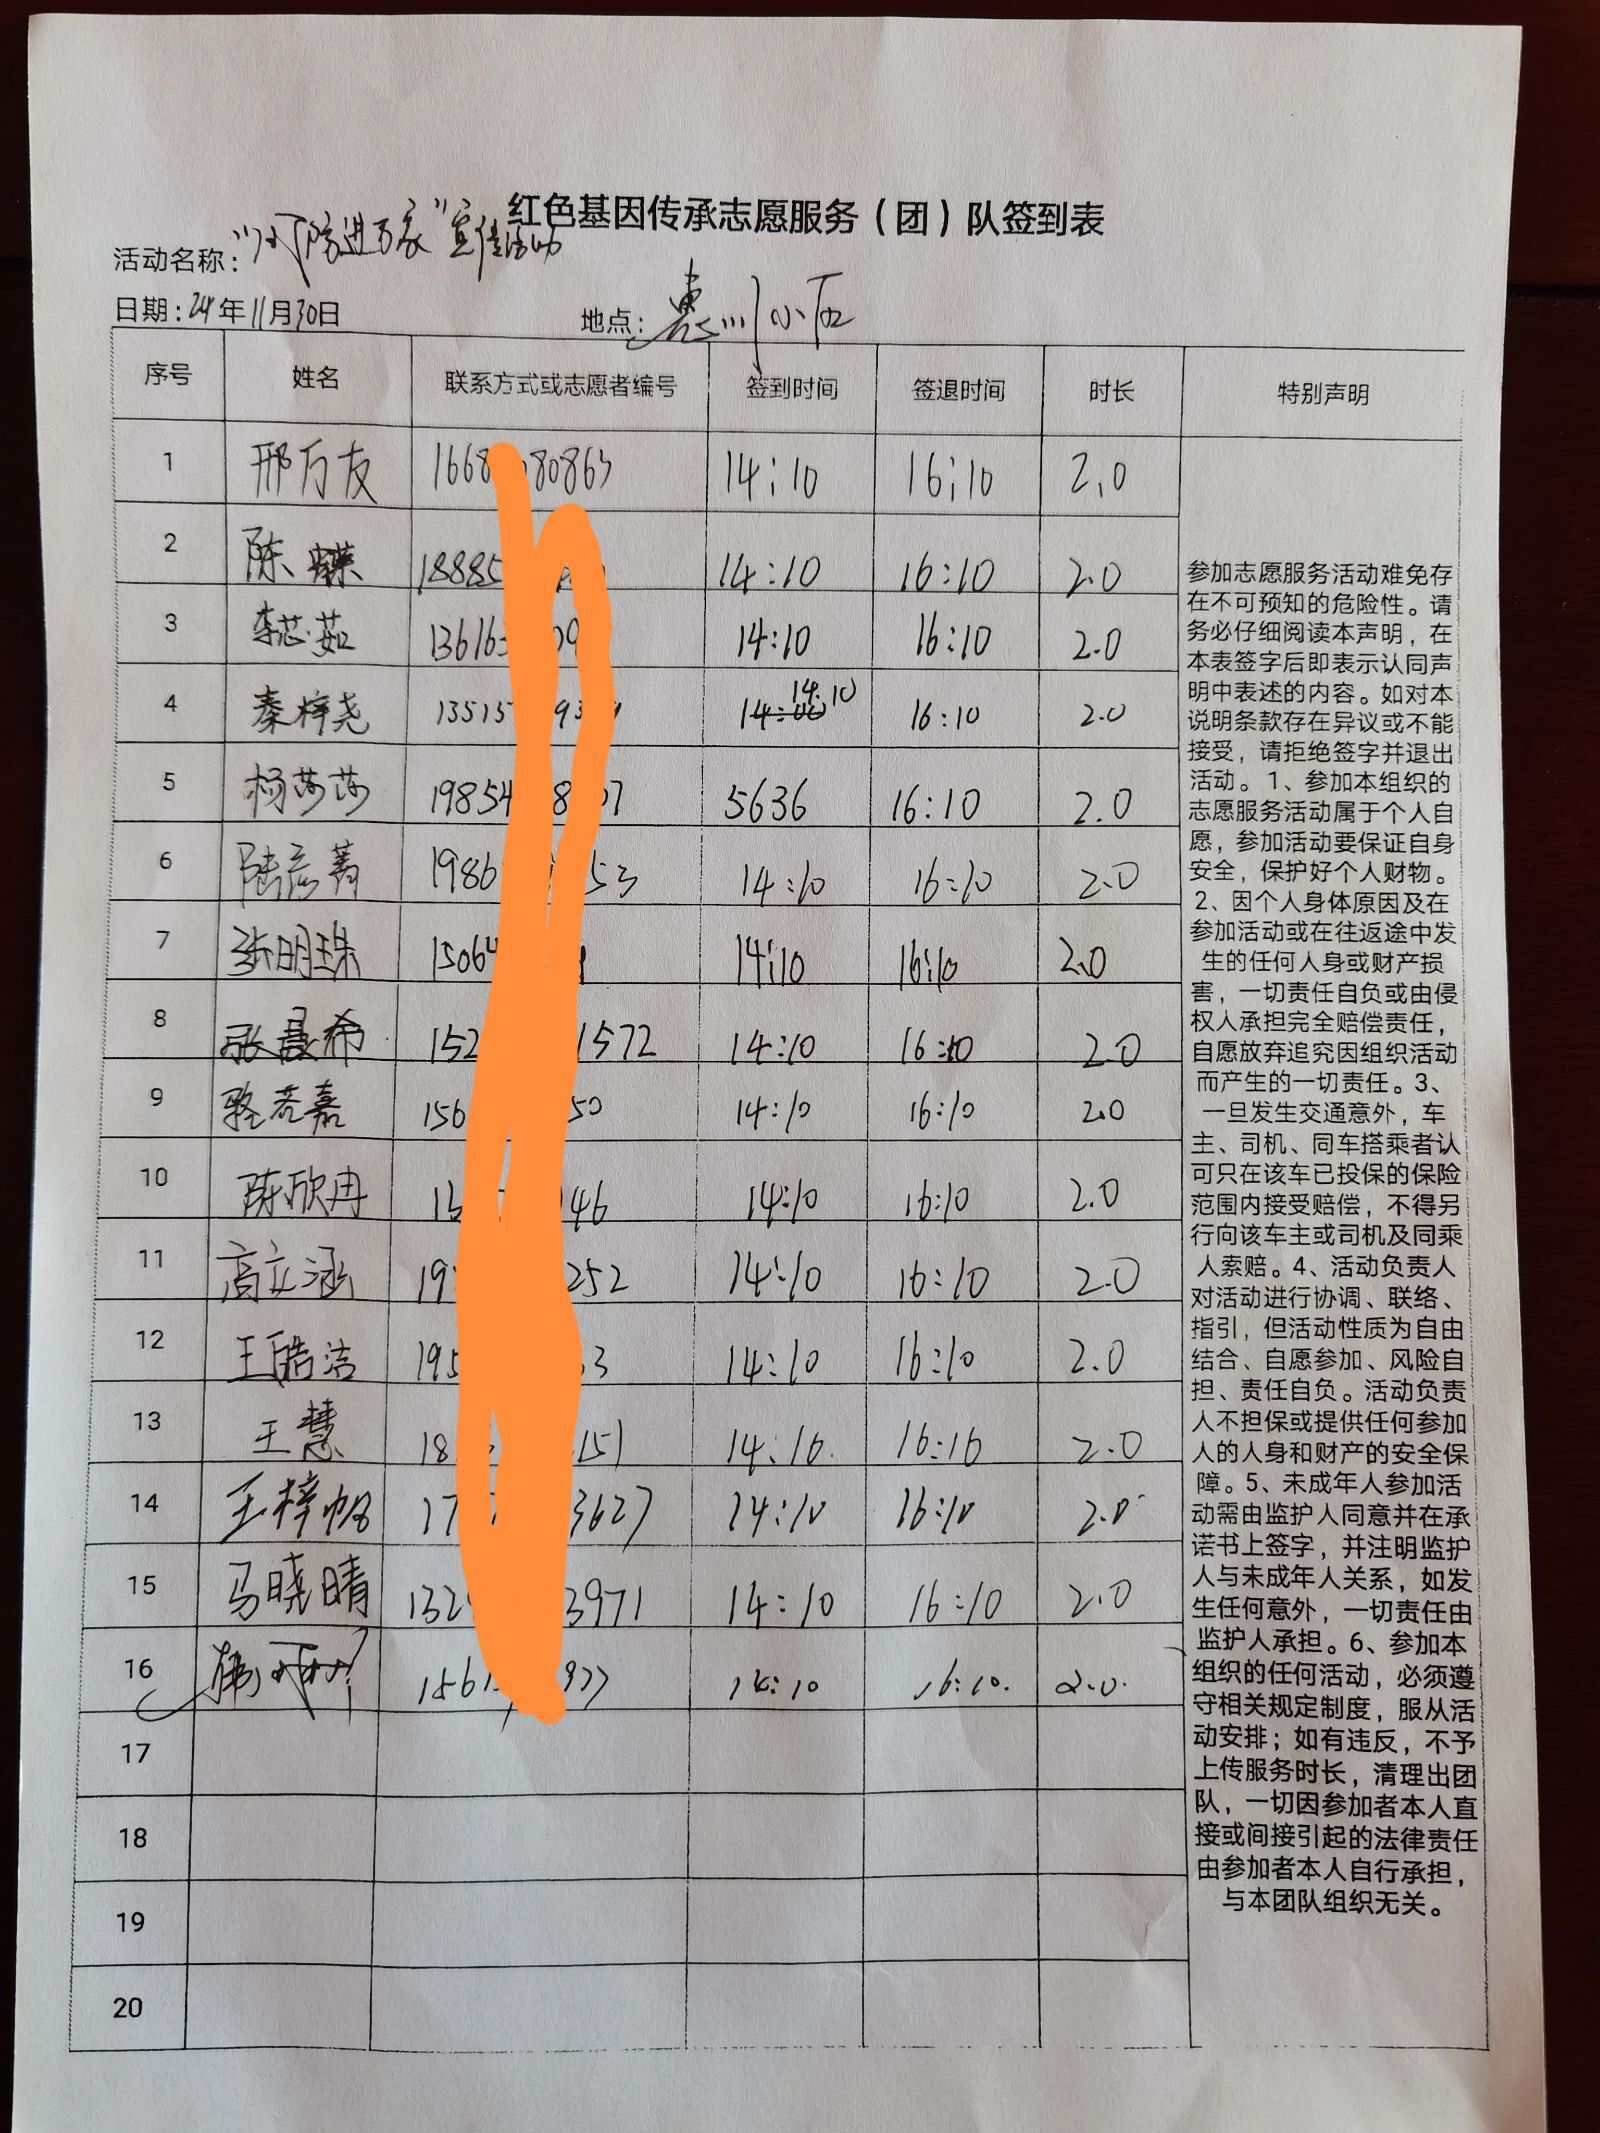 红色基因传承志愿服务（团）队签到表
活动名称： 防进万家"宣传活动
日期：24年11月30日 地点：惠川小区
序号 姓名 联系方式或志愿者编号 签到时间 签退时间 时长 特别声明
1 邢万友 1668 80863 14:10 16:10 2.0
2 陈 18885 14:10 16:10 2.0
3 李芯茹 136163 09 14:10 16:10 2.0
4 秦梓尧 13515 93 14:10 16:10 2.0
5 杨莎莎 19854 8 07 5636 16:10 2.0
6 陆彦菁 1986 53 14:10 16:10 2.0
7 张明珠 15064 14:10 16:10 2.0
8 张 希 152 1572 14:10 16:10 2.0
9 骆若嘉 156 50 14:10 16:10 2.0
10 陈欣冉 13 46 14:10 16:10 2.0
11 高立涵 19 252 14:10 16:10 2.0
12 王皓洁 195 3 14:10 16:10 2.0
13 王慧 18 151 14:10 16:10 2.0
14 王梓帆 17 3627 14:10 16:10 2.0
15 马晓晴 132 3971 14:10 16:10 2.0
16 1561 977 14:10 16:10. 2.0.
17
18
19
20
参加志愿服务活动难免存
在不可预知的危险性。请
务必仔细阅读本声明，在
本表签字后即表示认同声
明中表述的内容。如对本
说明条款存在异议或不能
接受，请拒绝签字并退出
活动。1、参加本组织的
志愿服务活动属于个人自
愿，参加活动要保证自身
安全，保护好个人财物。
2、因个人身体原因及在
参加活动或在往返途中发
生的任何人身或财产损
害，一切责任自负或由侵
权人承担完全赔偿责任，
自愿放弃追究因组织活动
而产生的一切责任。3、
一旦发生交通意外，车
主、司机、同车搭乘者认
可只在该车已投保的保险
范围内接受赔偿，不得另
行向该车主或司机及同乘
人索赔。4、活动负责人
对活动进行协调、联络、
指引，但活动性质为自由
结合、自愿参加、风险自
担、责任自负。活动负责
人不担保或提供任何参加
人的人身和财产的安全保
障。5、未成年人参加活
动需由监护人同意并在承
诺书上签字，并注明监护
人与未成年人关系，如发
生任何意外，一切责任由
监护人承担。6、参加本
组织的任何活动，必须遵
守相关规定制度，服从活
动安排；如有违反，不予
上传服务时长，清理出团
队，一切因参加者本人直
接或间接引起的法律责任
由参加者本人自行承担，
与本团队组织无关。